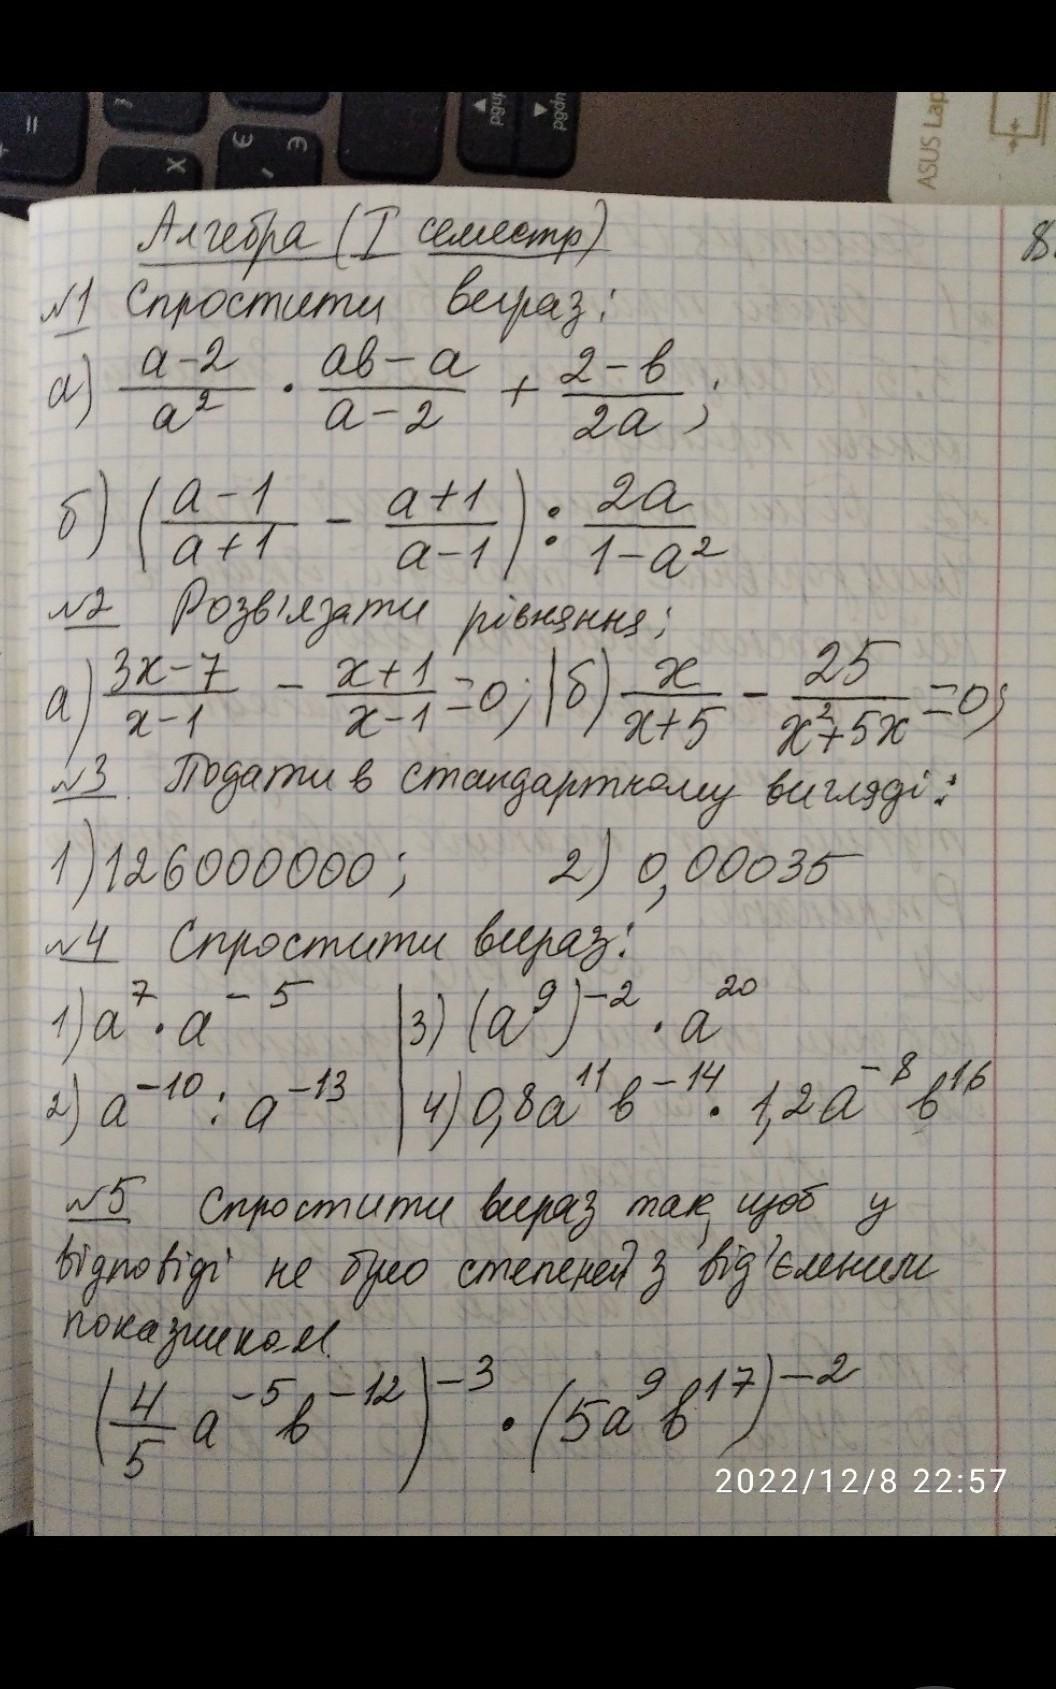 =
X
Є
Э
,
▲ pgup
▼ pgdn
ASUS Lap
Алгебра (I семестр)
8.
№1 Спростити вираз:
а) \frac{a-2}{a^2} \cdot \frac{ab-a}{a-2} + \frac{2-b}{2a};
б) (\frac{a-1}{a+1} - \frac{a+1}{a-1}) : \frac{2a}{1-a^2}
№2 Розв'язати рівняння;
а) \frac{3x-7}{x-1} - \frac{x+1}{x-1} = 0; | б) \frac{x}{x+5} - \frac{25}{x^2+5x} = 0;
№3 Подати в стандартному вигляді:
1) 126000000; 2) 0,00035
№4 Спростити вираз:
1) a^7 \cdot a^{-5} | 3) (a^9)^{-2} \cdot a^{20}
2) a^{-10} : a^{-13} | 4) 0,8a^{11}b^{-14} \cdot 1,2a^{-8}b^{16}
№5 Спростити вираз так, щоб у
відповіді не було степеней з від'ємним
показником.
(\frac{4}{5}a^{-5}b^{-12})^{-3} \cdot (5a^9b^{17})^{-2}
2022/12/8 22:57